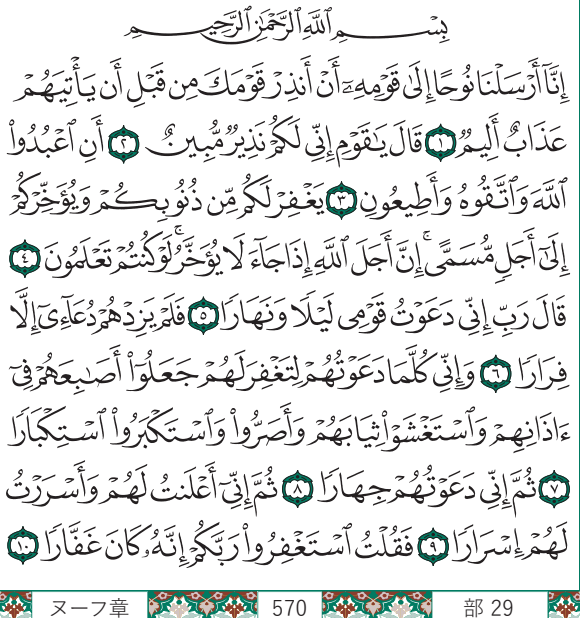 بِسْمِ ٱللَّهِ ٱلرَّحْمَٰنِ ٱلرَّحِيمِ
إِنَّآ أَرْسَلْنَا نُوحًا إِلَىٰ قَوْمِهِۦٓ أَنْ أَنذِرْ قَوْمَكَ مِن قَبْلِ أَن يَأْتِيَهُمْ
عَذَابٌ أَلِيمٌ ١ قَالَ يَٰقَوْمِ إِنِّى لَكُمْ نَذِيرٌ مُّبِينٌ ٢ أَنِ ٱعْبُدُوا۟
ٱللَّهَ وَٱتَّقُوهُ وَأَطِيعُونِ ٣ يَغْفِرْ لَكُم مِّن ذُنُوبِكُمْ وَيُؤَخِّرْكُمْ
إِلَىٰٓ أَجَلٍ مُّسَمًّى ۚ إِنَّ أَجَلَ ٱللَّهِ إِذَا جَآءَ لَا يُؤَخَّرُ ۖ لَوْ كُنتُمْ تَعْلَمُونَ ٤
قَالَ رَبِّ إِنِّى دَعَوْتُ قَوْمِى لَيْلًا وَنَهَارًا ٥ فَلَمْ يَزِدْهُمْ دُعَآءِىٓ إِلَّا
فِرَارًا ٦ وَإِنِّى كُلَّمَا دَعَوْتُهُمْ لِتَغْفِرَ لَهُمْ جَعَلُوٓا۟ أَصَٰبِعَهُمْ فِىٓ
ءَاذَانِهِمْ وَٱسْتَغْشَوْا۟ ثِيَابَهُمْ وَأَصَرُّوا۟ وَٱسْتَكْبَرُوا۟ ٱسْتِكْبَارًا
٧ ثُمَّ إِنِّى دَعَوْتُهُمْ جِهَارًا ٨ ثُمَّ إِنِّىٓ أَعْلَنتُ لَهُمْ وَأَسْرَرْتُ
لَهُمْ إِسْرَارًا ٩ فَقُلْتُ ٱسْتَغْفِرُوا۟ رَبَّكُمْ إِنَّهُۥ كَانَ غَفَّارًا ١٠
ヌーフ章 570 部 29